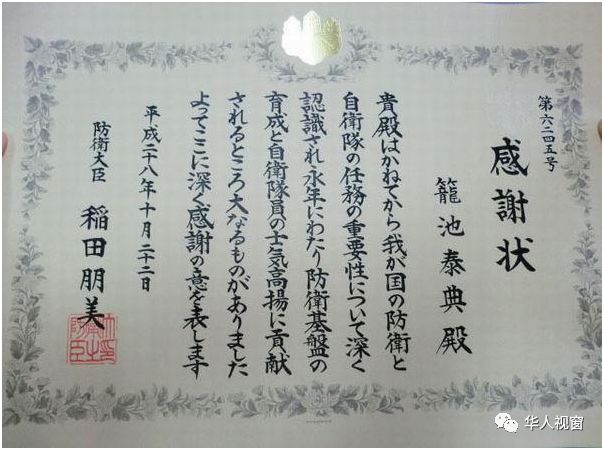 第六二四五号
感謝状
籠池泰典殿
貴殿はかねてから我が国の防衛と
自衛隊の任務の重要性について深く
認識され永年にわたり防衛基盤の
育成と自衛隊員の士気高揚に貢献
されるところ大なるものがありました
よってここに深く感謝の意を表します
平成二十八年十月二十二日
防衛大臣 稲田朋美
华人视窗